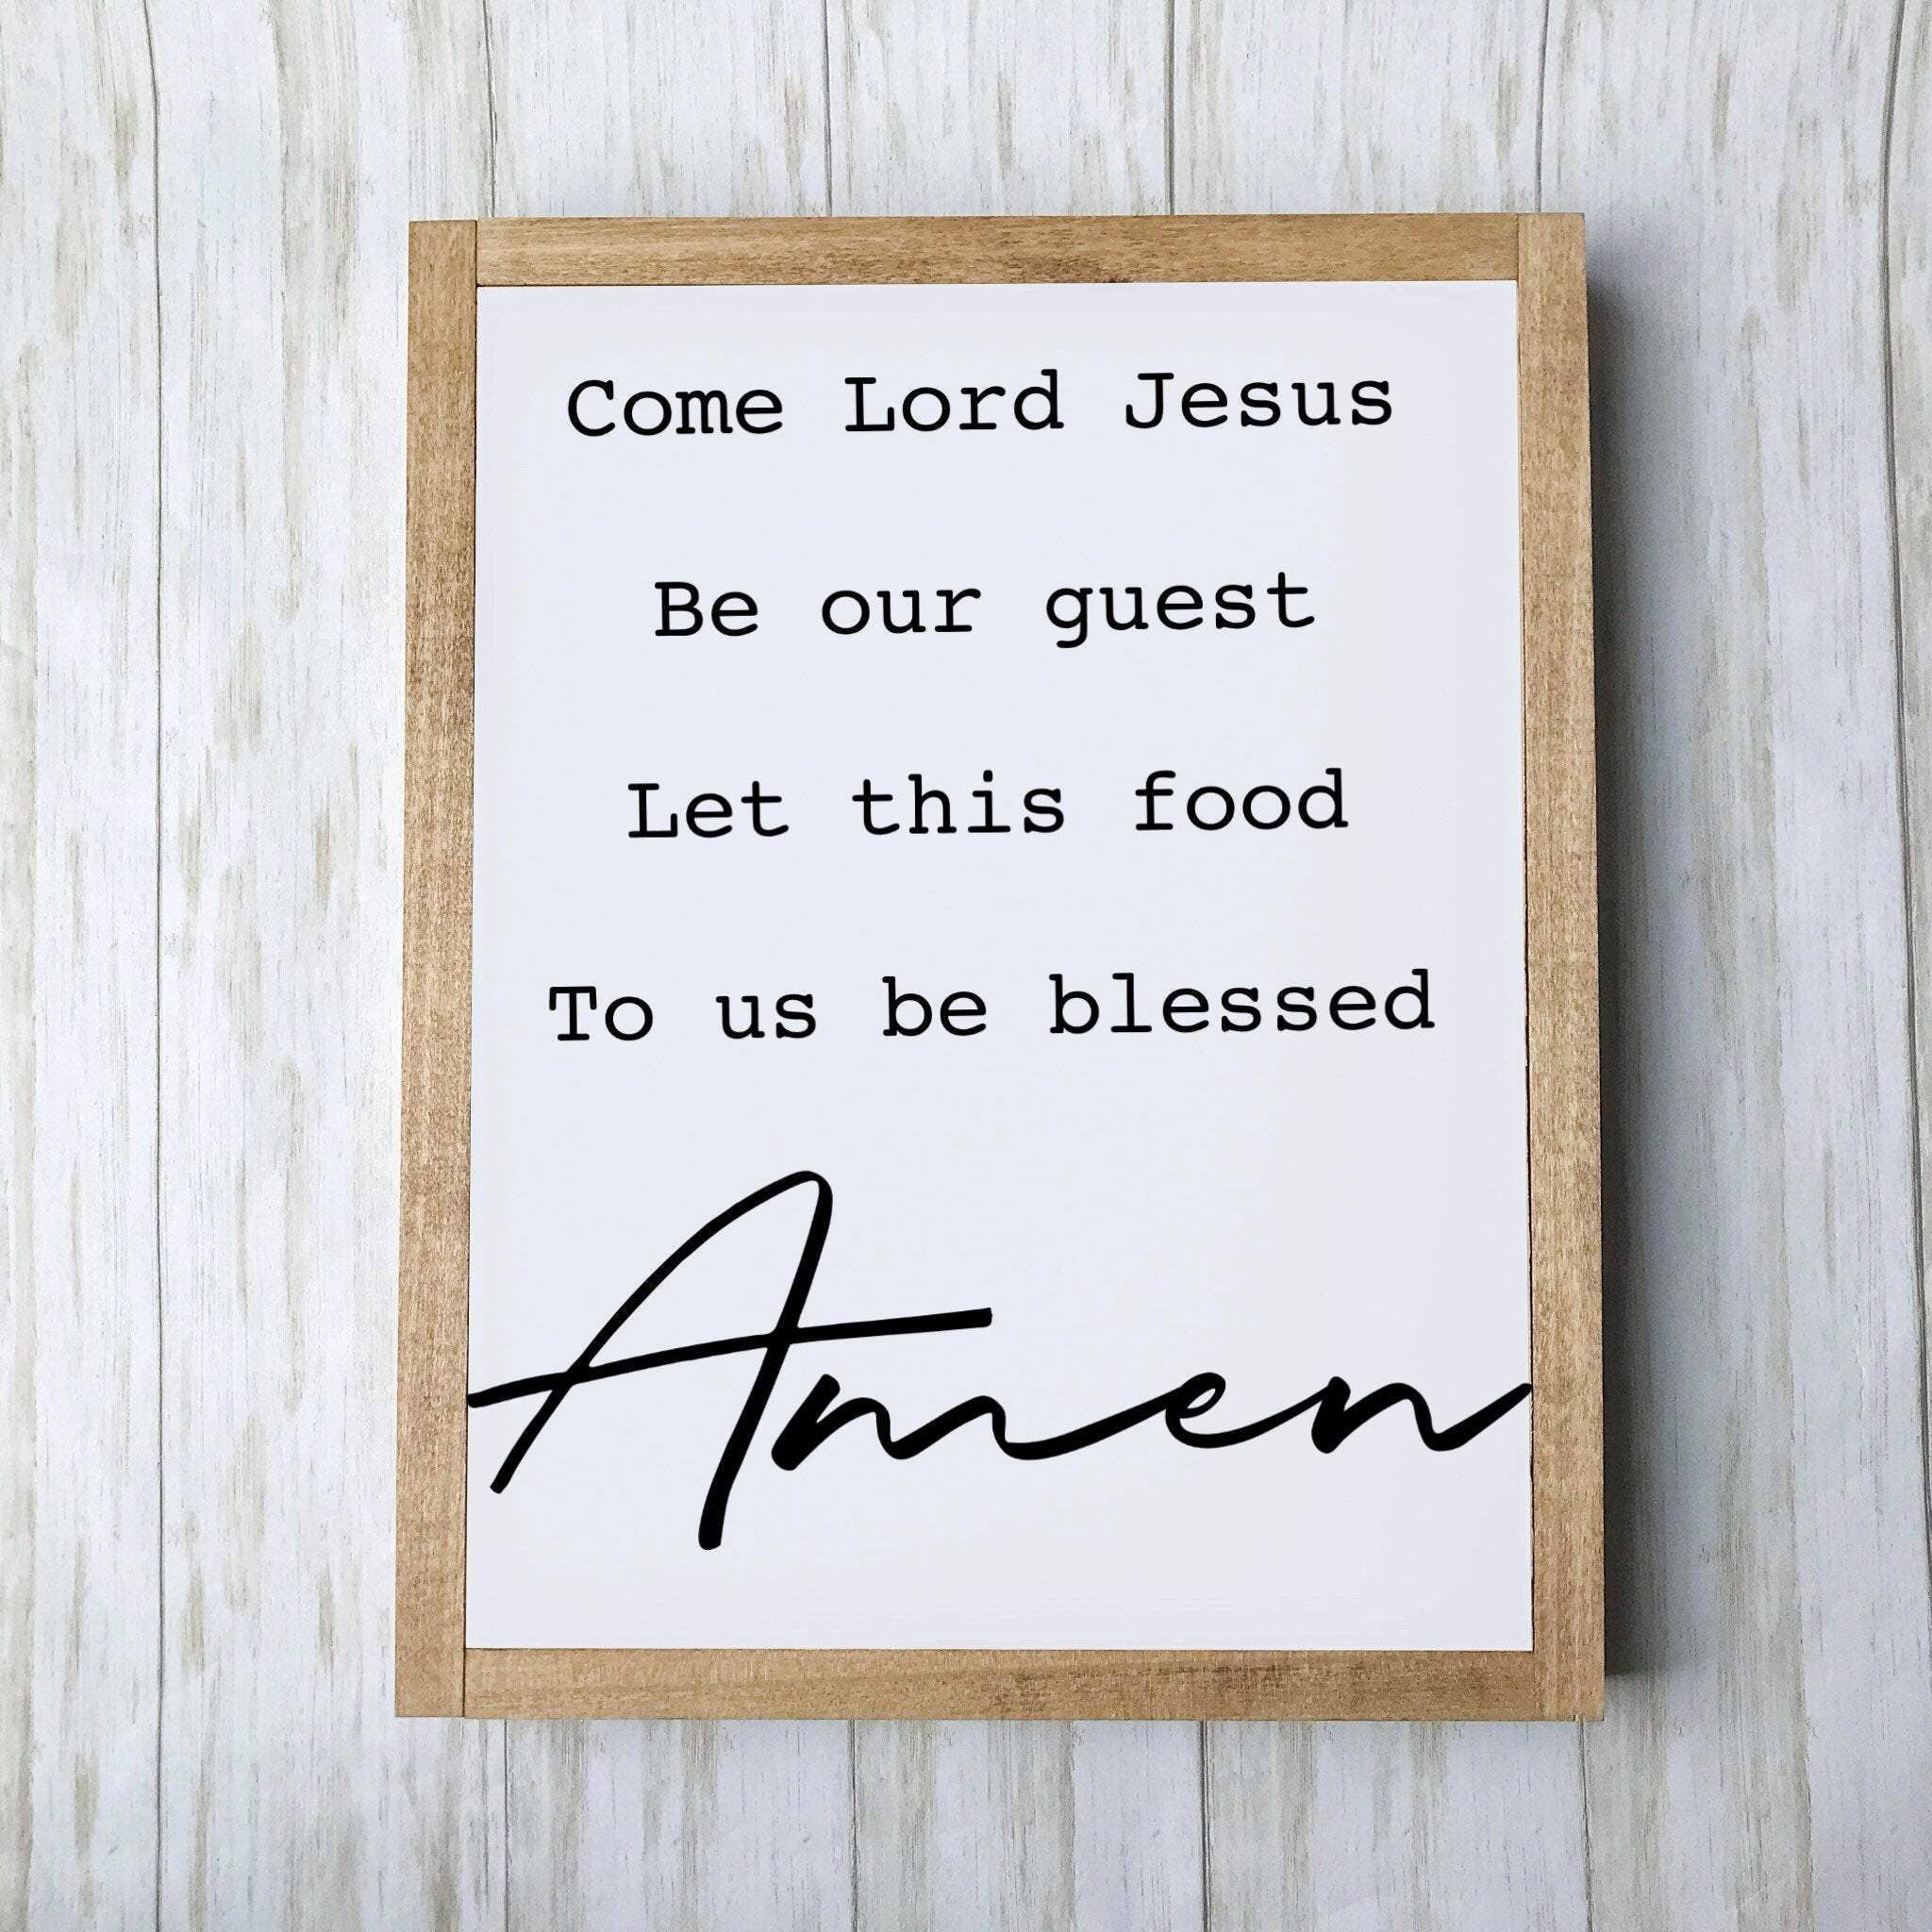 Come Lord Jesus
Be our guest
Let this food
To us be blessed
Amen